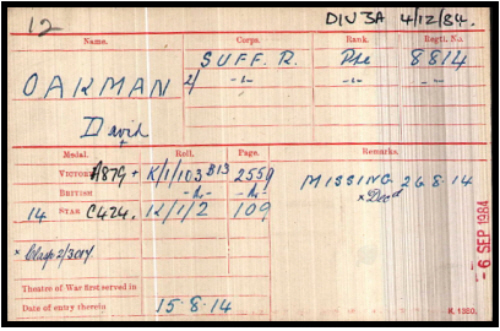 12 DIV 3A 4/12/84.
Name. Corps. Rank. Regtl. No.
SUFF. R. Pte 8814
OAKMAN 2/ -"- -"- -"-
David
Medal. Roll. Page. Remarks.
VICTORY A879 + K/1/103 B13 2559 MISSING 26.8.14
BRITISH -"- -"- × Decd
14 STAR C424. K/1/2 109
× Clasp 2/3014
- 6 SEP 1984
Theatre of War first served in
Date of entry therein 15.8.14
K. 1380.